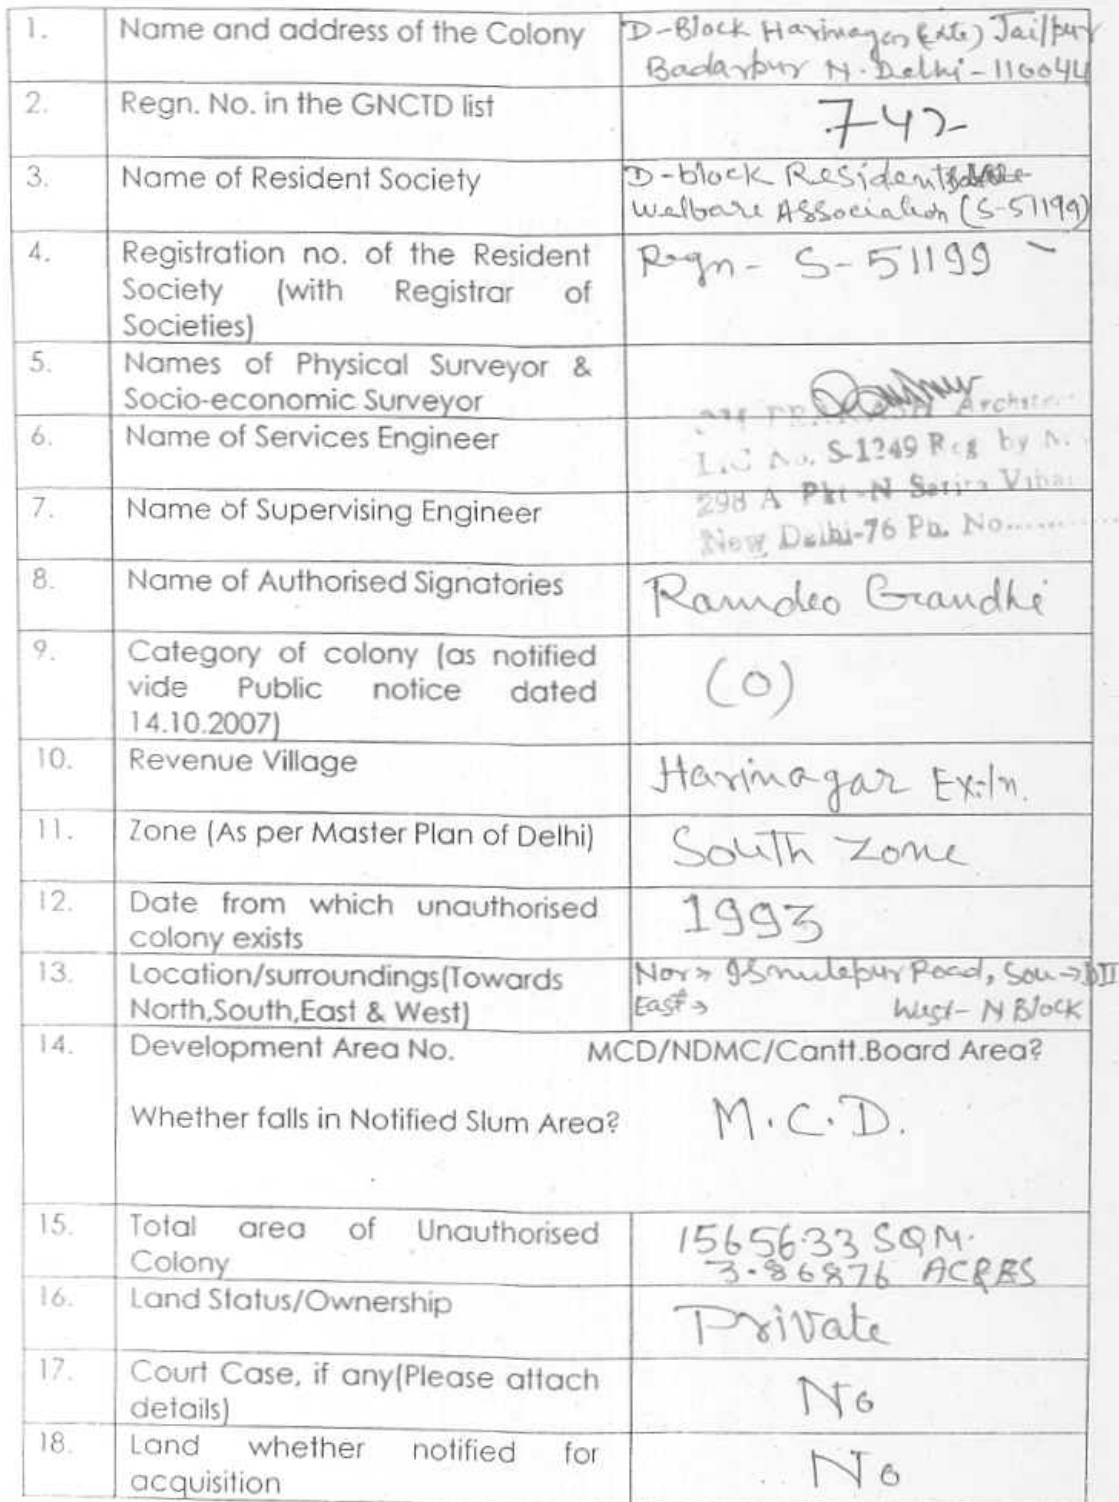 1. Name and address of the Colony D-Block Harinagar Extn) Jaitpur
Badarpur N. Delhi - 110044
2. Regn. No. in the GNCTD list 742
3. Name of Resident Society D-block Resident
Welbare Association (S-51199)
4. Registration no. of the Resident Regn- S-51199
Society (with Registrar of
Societies)
5. Names of Physical Surveyor &
Socio-economic Surveyor
Architect
6. Name of Services Engineer
No. S-1249 Reg by
298 A Pkt-N Sarita Vihar
7. Name of Supervising Engineer
New Delhi-76 Ph. No............
8. Name of Authorised Signatories Ramdeo Grandhi
9. Category of colony (as notified (O)
vide Public notice dated
14.10.2007)
10. Revenue Village Harinagar Ex:tn.
11. Zone (As per Master Plan of Delhi) South Zone
12. Date from which unauthorised 1993
colony exists
13. Location/surroundings(Towards Nor → Ismulepur Road, Sou → DII
North,South,East & West) East → West- N Block
14. Development Area No. MCD/NDMC/Cantt.Board Area?
Whether falls in Notified Slum Area? M.C.D.
15. Total area of Unauthorised 15656.33 SQM.
Colony 3.86876 ACRES
16. Land Status/Ownership Private
17. Court Case, if any(Please attach No
details)
18. Land whether notified for No
acquisition